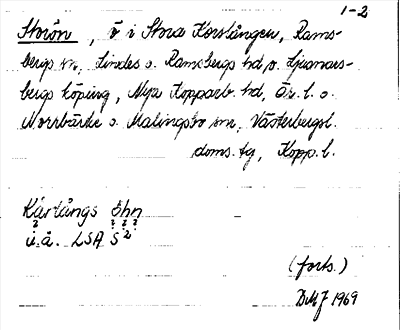 1-2
Storön, ö i Stora Korslången, Rams-
bergs sn, Lindes o. Ramsbergs hd, o. Ljusnars-
bergs köping, Nya Kopparb. hd, Ör. l. o.
Norrbärke o. Malingsbo snr, Västerbergsl.
doms. tg, Kopp. l.
Kårlångs öhn
u.å. LSA S 2
(forts.)
DMJ 1969